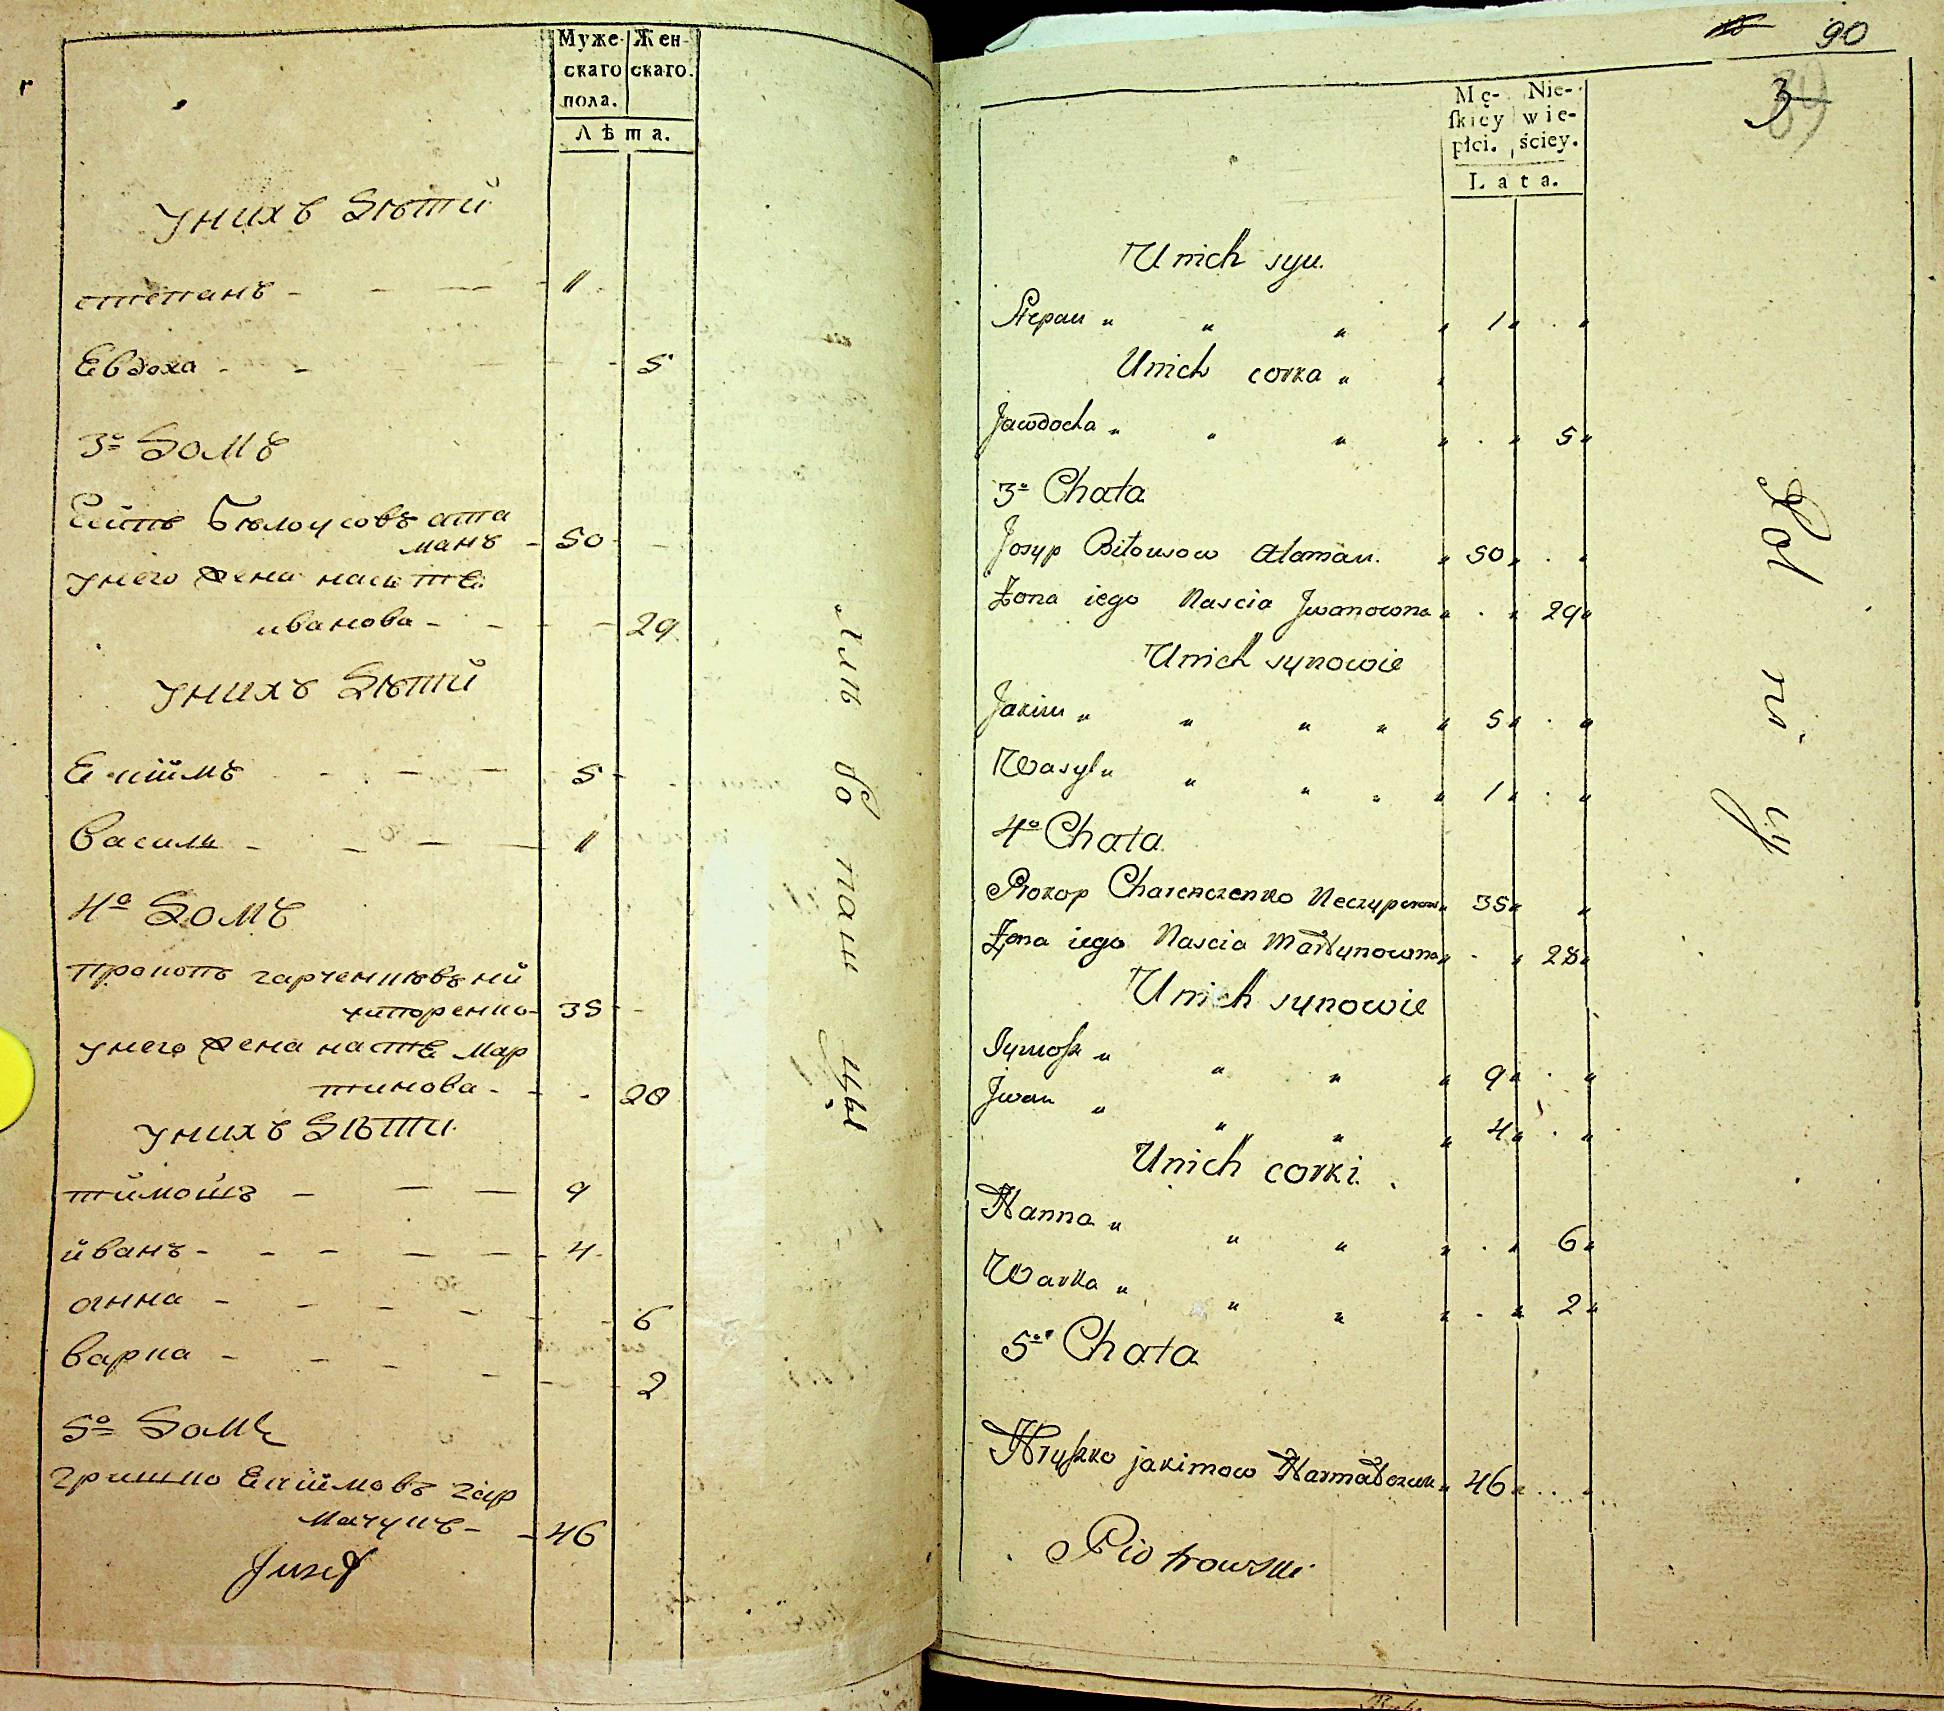 Муже-
скаго
пола.
Жен-
скаго.
Лѣта.
унихъ дѣтій
степанъ - - - - 11
Евдоха - - - - 5
3о домъ
Бѣлоусовъ ата
манъ - 50 -
унего жена
иванова - - - - 29
унихъ дѣтій
Екіимъ - - - 5 -
василь - - - - 11
4о домъ
прокопъ гарченковъ ни
хипоренко - 35 -
унего жена настя мар
тинова - - - 28
унихъ дѣти
тимошъ - - - 9
иванъ - - - - - - 4 -
анна - - - - - - 6
варка - - - - - - 2
5о домъ
гришко Екіимовъ гар
мачукъ - - 46
Jusef
90
3
89
Mę-
ſkiey
płci.
Nie-
wie-
ściey.
Lata.
Unich syn.
Stepan " " " " 1 " . "
Unich corka " "
Jawdocha " " " " . " 5 "
3o Chata
Josyp Biłousow Ataman. " 50 " . "
Żona iego Nascia Jwanowna " . " 29 "
Unich synowie
Jakim " " " " " 5 " . "
Wasyl " " " " " 1 " . "
4o Chata
Prokop Charenczenko Neczyporow " 35 " "
Żona iego Nascia Martynowna " . " 28 "
Unich synowie
Tymosz " " " " 9 " . "
Jwan " " " " 4 " . "
Unich corki.
Hanna " " " " . " 6 "
Warka " " " " . " 2 "
5o Chata
Hryszko jakimow Harmaczuk " 46 " . . .
Piotrowski